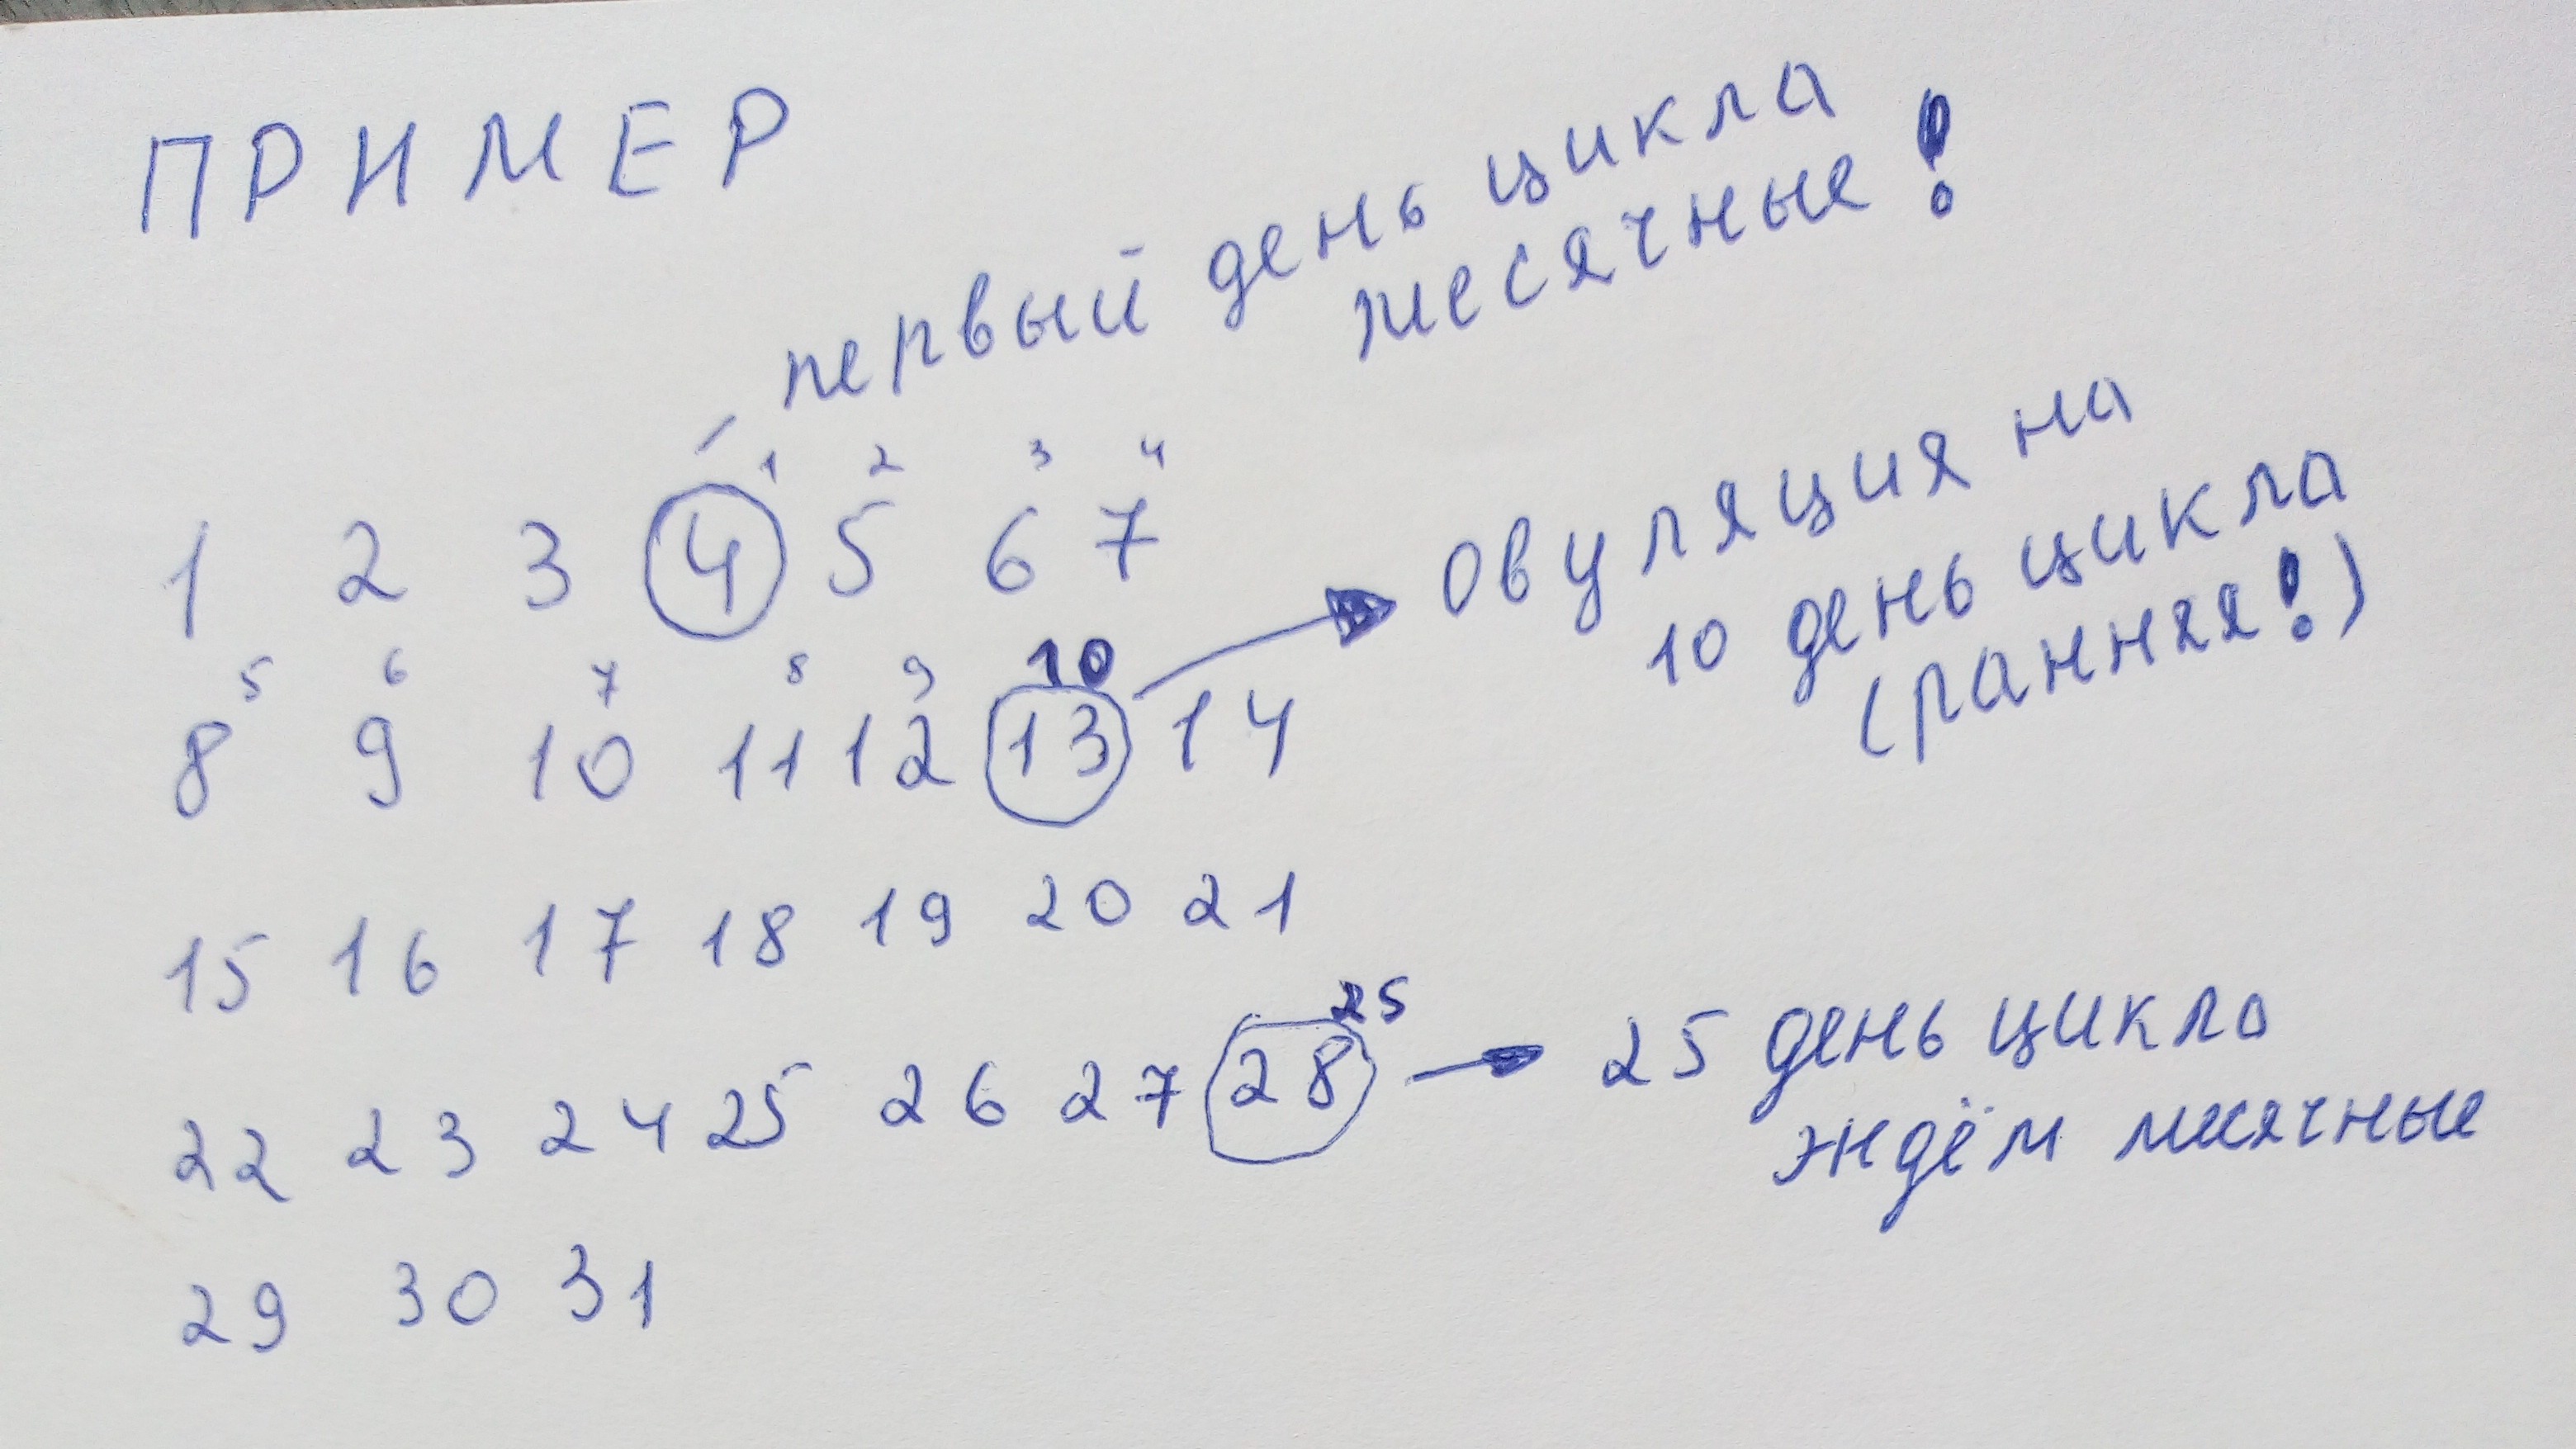 ПРИМЕР
первый день цикла
месячные!
1 2 3 4
1 2 3 4 5 6 7
овуляция на
10 день цикла
(ранняя!)
5 6 7 8 9 10
8 9 10 11 12 13 14
15 16 17 18 19 20 21
25
22 23 24 25 26 27 28
25 день цикла
ждём месячные
29 30 31